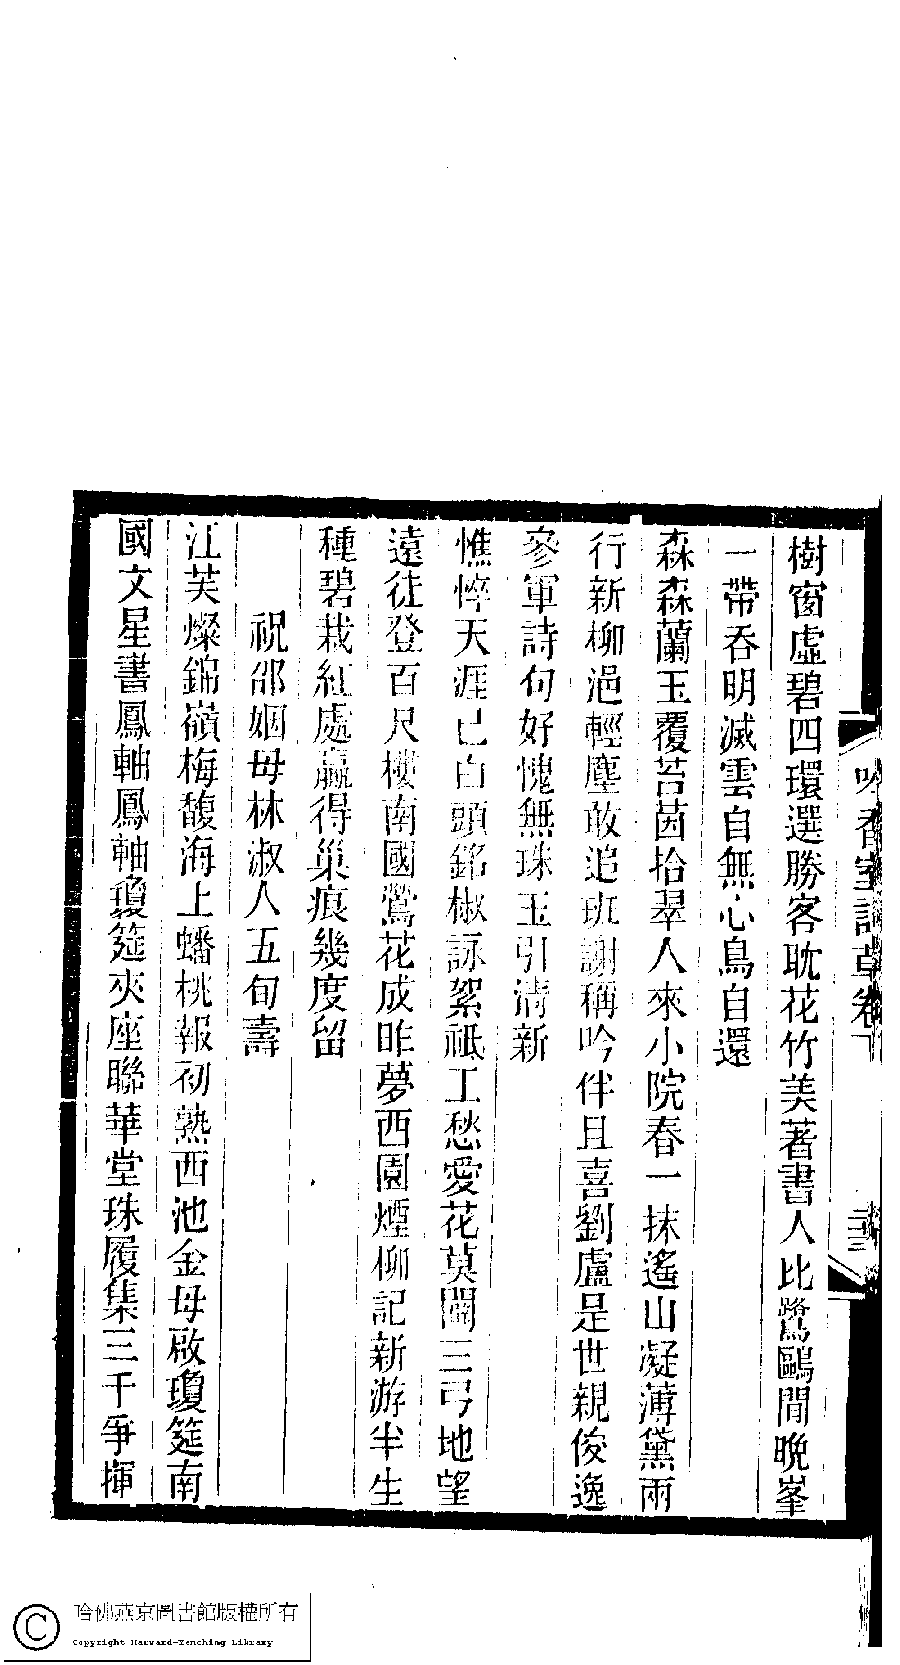 樹窗虛碧四環選勝客耽花竹美著書人比鷺鷗閒晚峯
一帶吞明滅雲自無心鳥自還
森森蘭玉覆苔茵拾翠人來小院春一抹遙山凝薄黛雨
行新柳浥輕塵敢追班謝稱吟伴且喜劉盧是世親俊逸
參軍詩句好愧無珠玉引清新
憔悴天涯已白頭銘椒詠絮祗工愁愛花莫闢三弓地望
遠徒登百尺樓南國鶯花成昨夢西園煙柳記新游半生
種碧栽紅處贏得巢痕幾度留
祝邵姻母林淑人五旬壽
江芙燦錦嶺梅馥海上蟠桃報初熟西池金母啟瓊筵南
國文星書鳳軸鳳軸瓊筵夾座聯華堂珠履集三千爭揮
香室詩草卷下
哈佛燕京圖書館版權所有
Copyright Harvard-Yenching Library